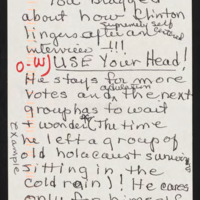 You bragged
about how Clinton
supremely self
lingers after an second
interview - !!!
O-W USE Your Head!
He stays for more
adulation
votes and the next
group has to wait
+ wonder. The time
he left a group of
old holocaust survivors
sitting in the
cold rain)! He cares
only for himself
Example